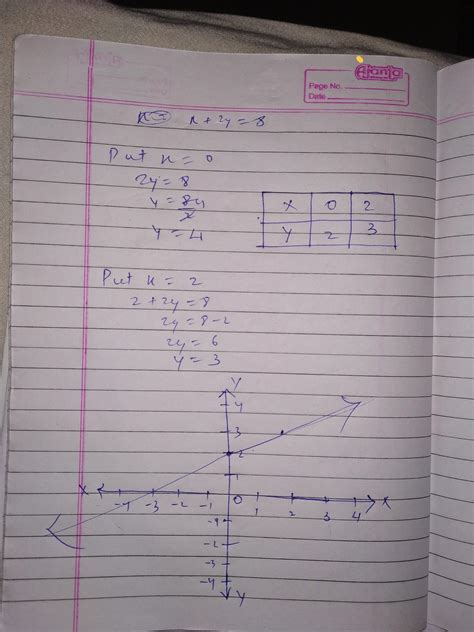 Ajanta
Page No.
Date
x + 2y = 8
Put x = 0
2y = 8
y = 8 4
2
y = 4
X 0 2
Y 2 3
Put x = 2
2 + 2y = 8
2y = 8 - 2
2y = 6
y = 3
Y
4
3
2
1
X -4 -3 -2 -1 0 1 2 3 4 X
-1
-2
-3
-4
Y